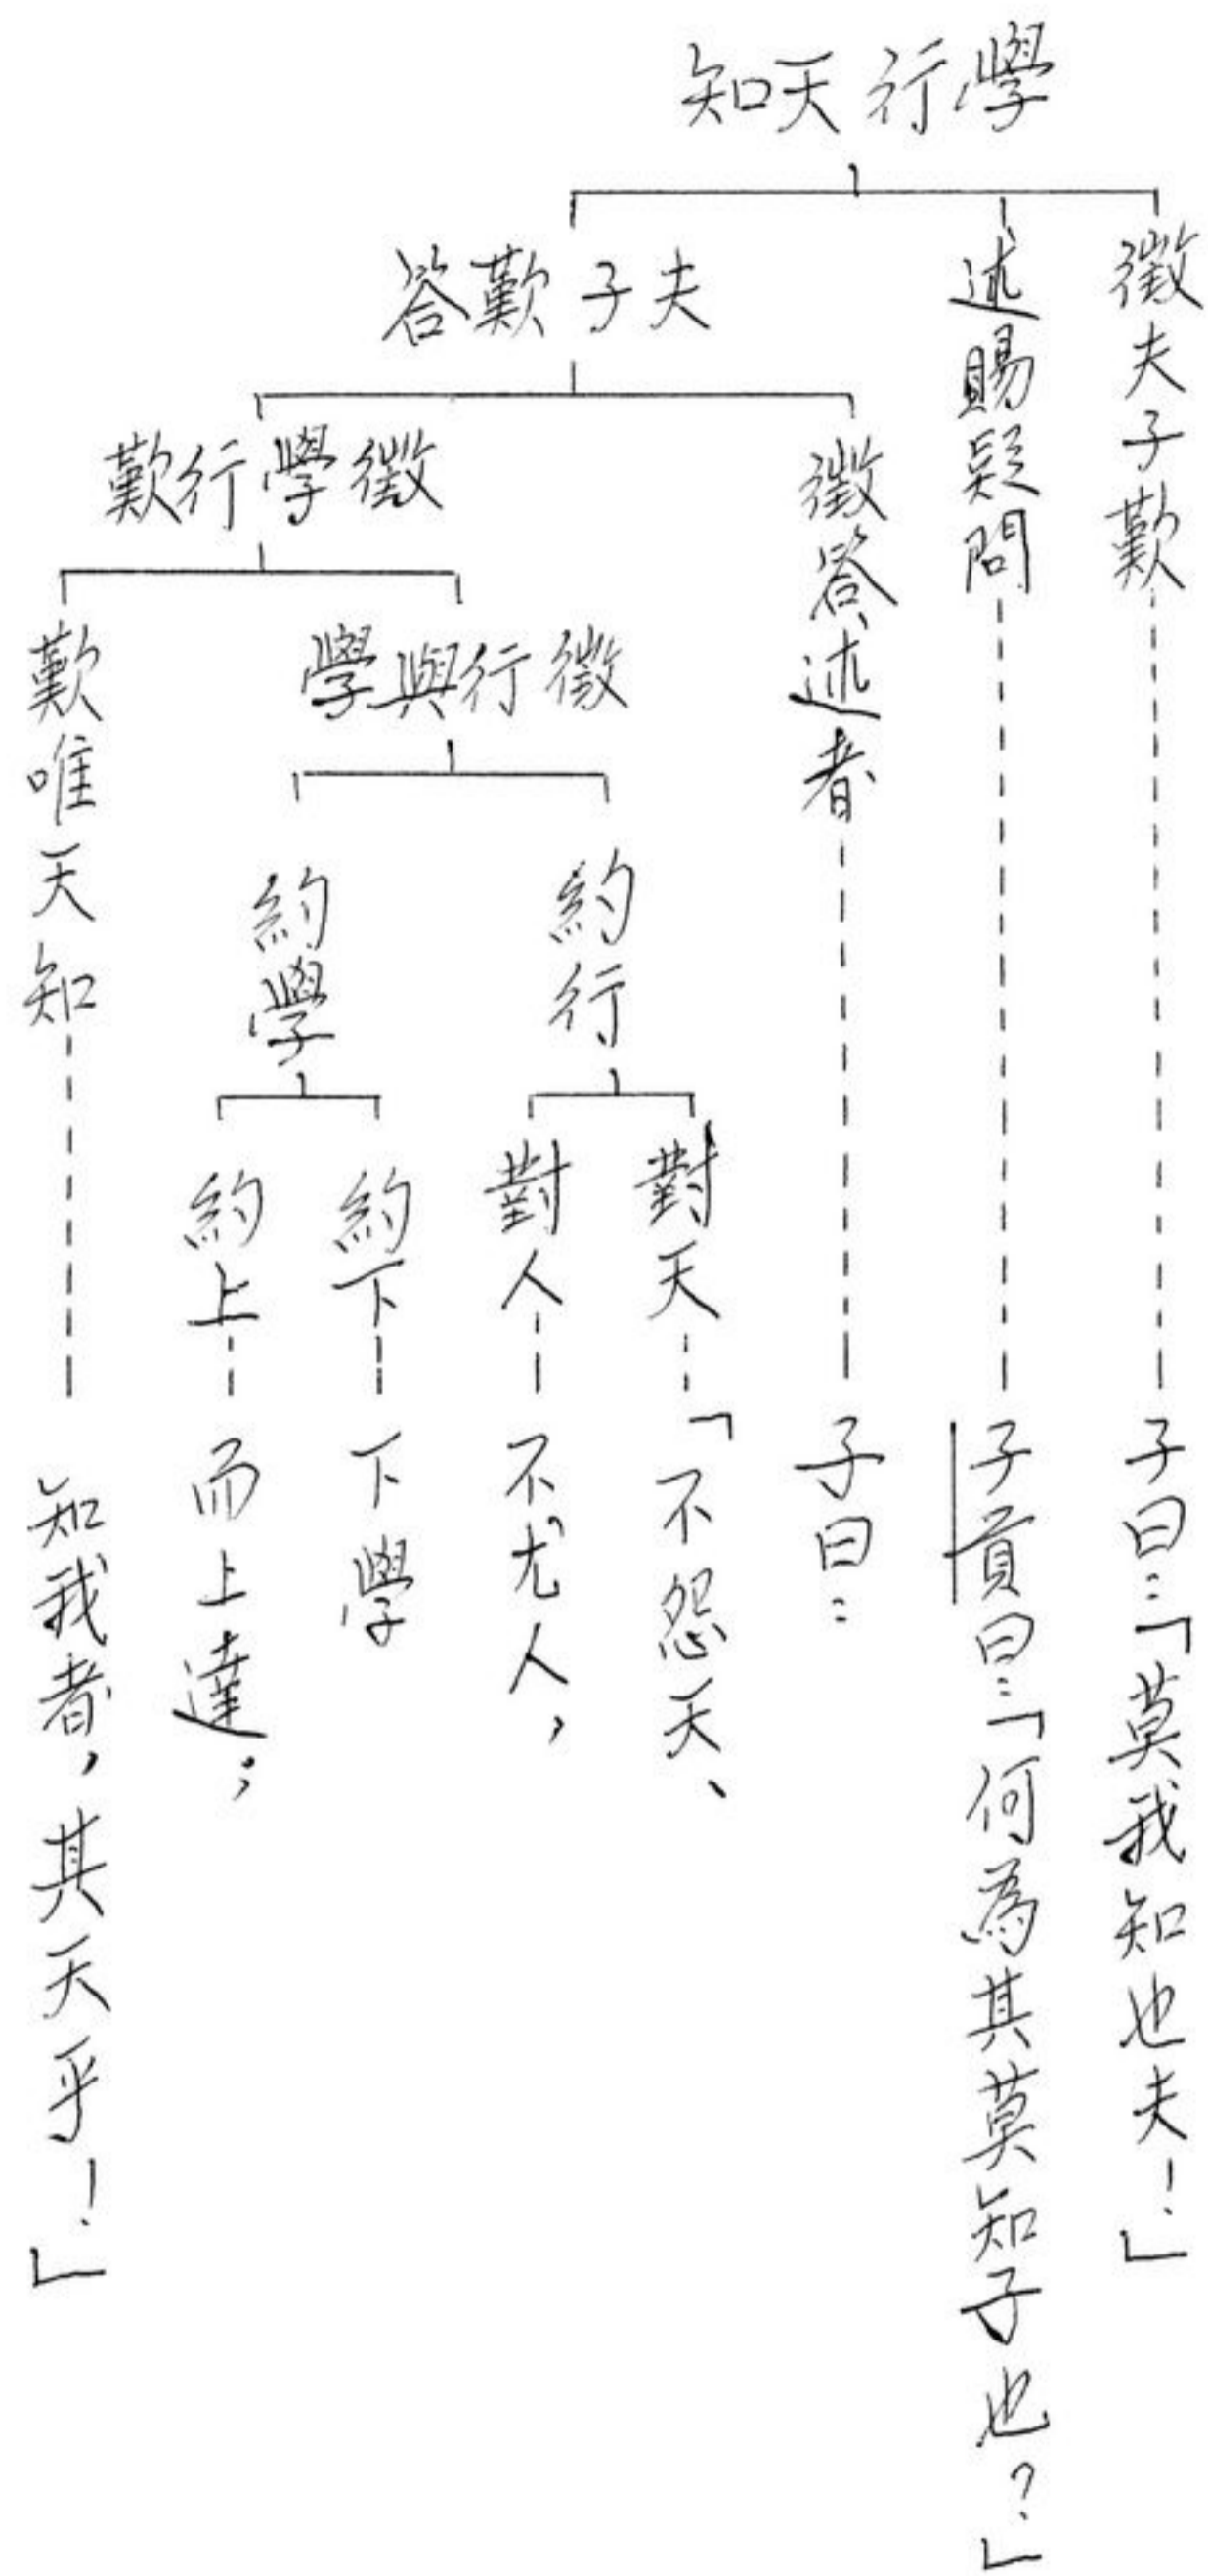 學行天知
徵夫子歎
子曰：「莫我知也夫！」
述賜疑問
子貢曰：「何為其莫知子也？」
夫子歎答
徵答述者
子曰：
徵學行歎
徵行與學
約行
對天
「不怨天、
對人
不尤人，
約學
約下
下學
約上
而上達；
歎唯天知
知我者，其天乎！」